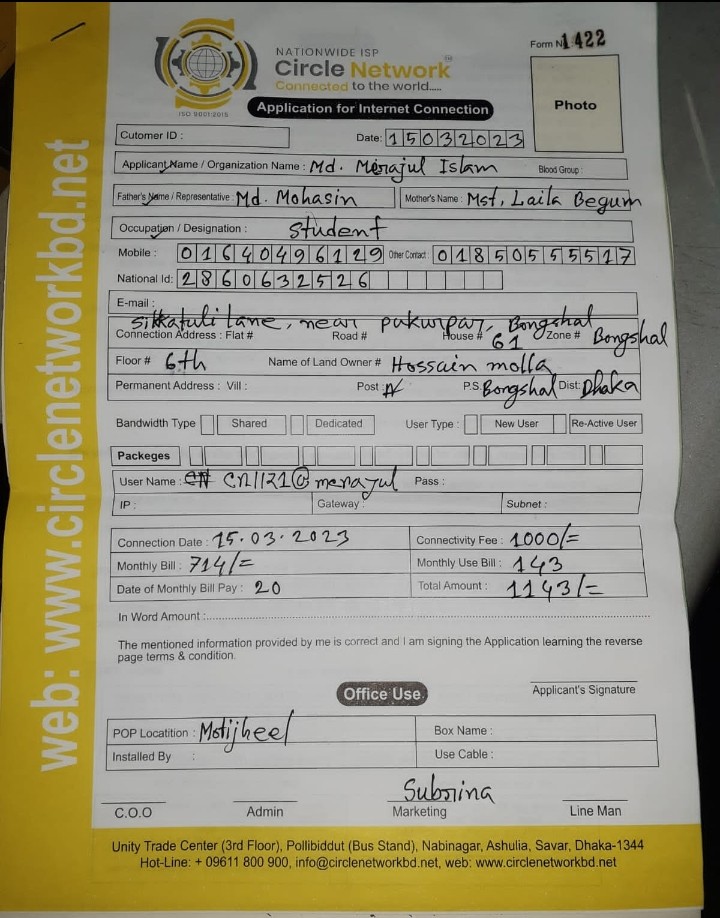 NATIONWIDE ISP
Circle Network
Connected to the world.....
ISO 9001:2015
Form No 1422
Application for Internet Connection
Photo
Cutomer ID :
Date: 15032023
Applicant Name / Organization Name : Md. Merajul Islam Blood Group :
Father's Name / Representative : Md. Mohasin Mother's Name : Mst, Laila Begum
Occupation / Designation : Student
Mobile : 01640496129 Other Contact : 01850555517
National Id: 2860632526
E-mail :
sikkatuli lane, near pukurpar, Bongshal
Connection Address : Flat # Road # House # 61 Zone # Bongshal
Floor # 6th Name of Land Owner # Hossain molla
Permanent Address : Vill : Post : P.S. Bongshal Dist: Dhaka
Bandwidth Type Shared Dedicated User Type : New User Re-Active User
Packeges
User Name : cn1121@merajul Pass :
IP : Gateway : Subnet :
Connection Date : 15.03.2023 Connectivity Fee : 1000/=
Monthly Bill : 714/= Monthly Use Bill : 143
Date of Monthly Bill Pay : 20 Total Amount : 1143/=
In Word Amount :
The mentioned information provided by me is correct and I am signing the Application learning the reverse
page terms & condition.
Applicant's Signature
Office Use
POP Locatition : Motijheel Box Name :
Installed By : Use Cable :
Subrina
C.O.O Admin Marketing Line Man
Unity Trade Center (3rd Floor), Pollibiddut (Bus Stand), Nabinagar, Ashulia, Savar, Dhaka-1344
Hot-Line: + 09611 800 900, info@circlenetworkbd.net, web: www.circlenetworkbd.net
web: www.circlenetworkbd.net